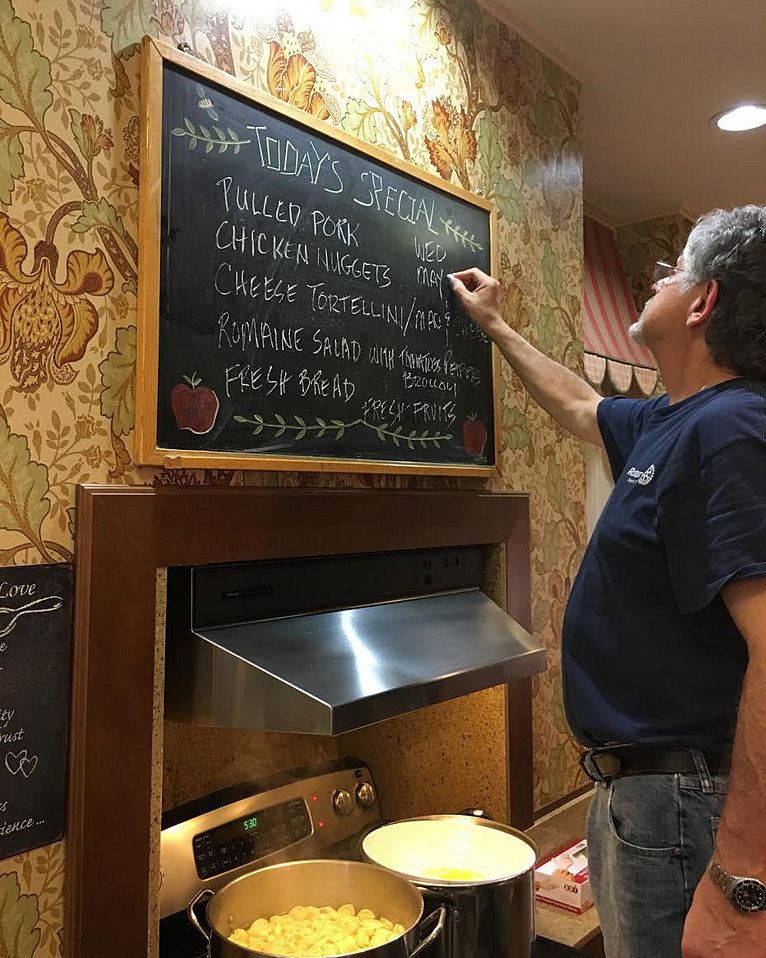 TODAY'S SPECIAL
PULLED PORK
WED
CHICKEN NUGGETS
MAY
CHEESE TORTELLINI/MAC & CHEESE
ROMAINE SALAD WITH TOMATOES PEPPERS
FRESH BREAD
FRESH FRUITS
Love
ty
rust
s
ience...
5:30
Rotary